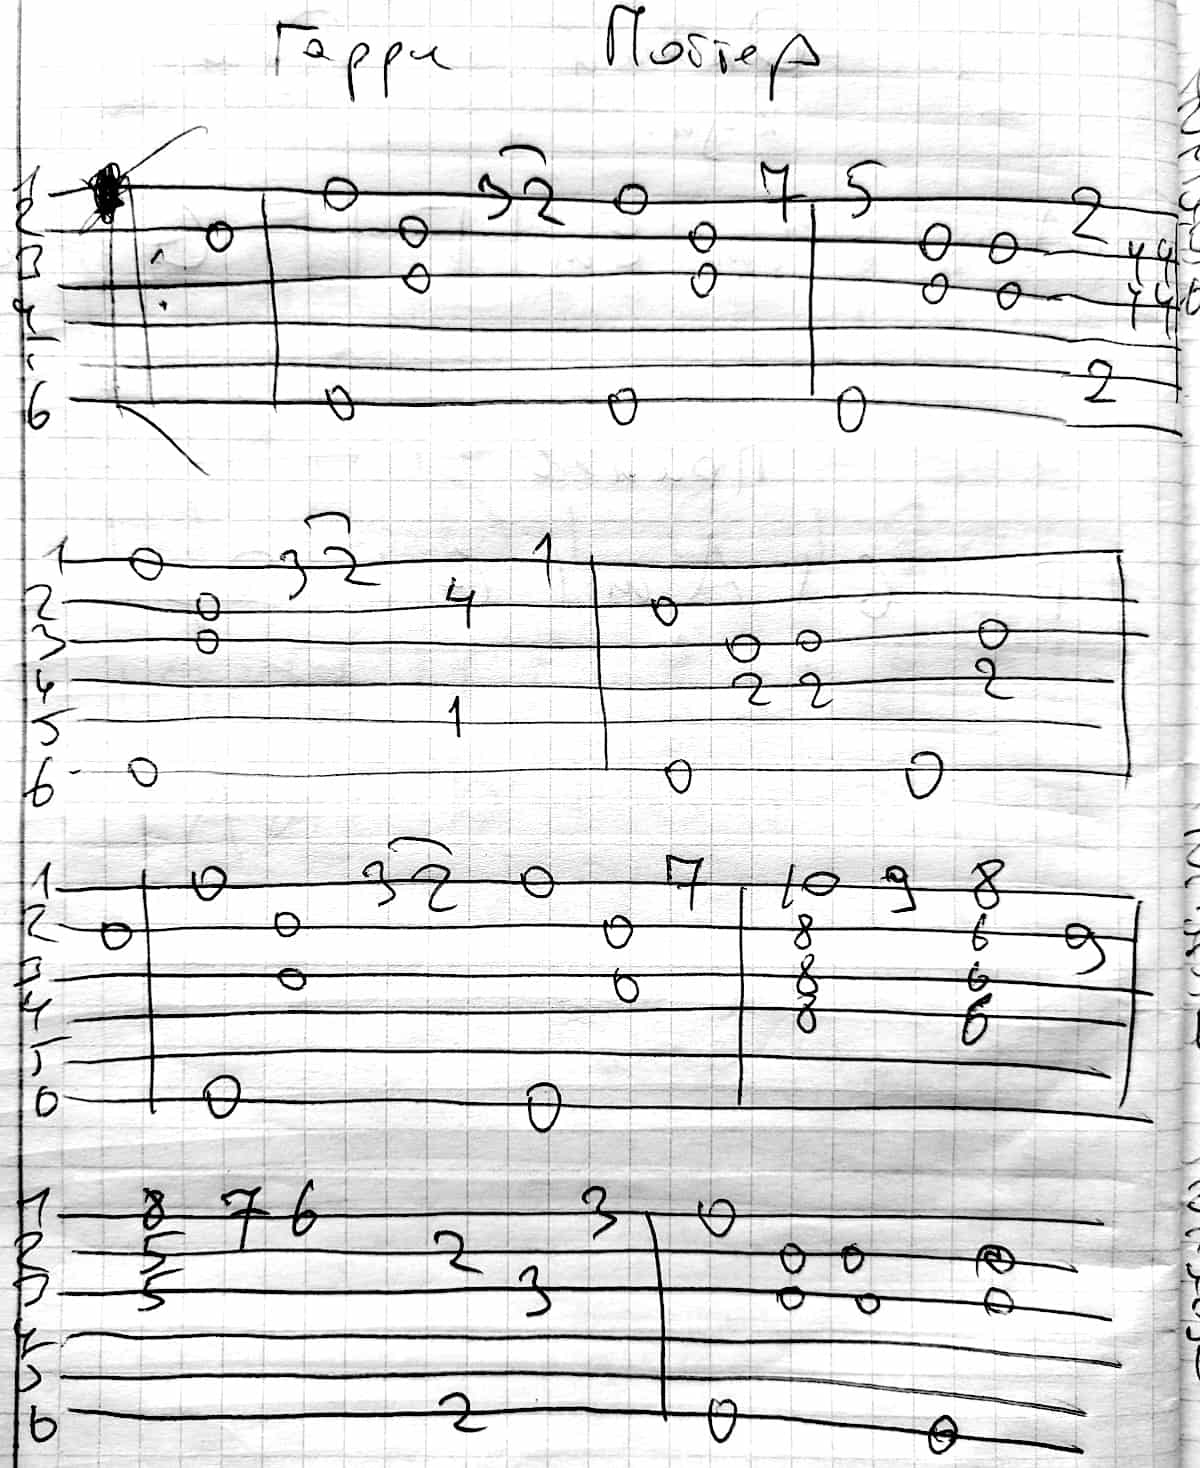 Гарри Поттер
1 0 3 2 0 7 5 2
2 0 0 0 0 0 4 4
3 0 0 0 0 4 4
4
5 2
6 0 0 0
1 0 3 2 1
2 0 4 0
3 0 0 0 0
4 2 2 2
5 1
6 0 0 0
1 0 3 2 0 7 10 9 8
2 0 0 0 8 6 9
3 0 0 8 6
4 8 6
5
6 0 0
1 8 7 6 3 0
2 5 2 0 0 0
3 5 3 0 0 0
4
5
6 2 0 0